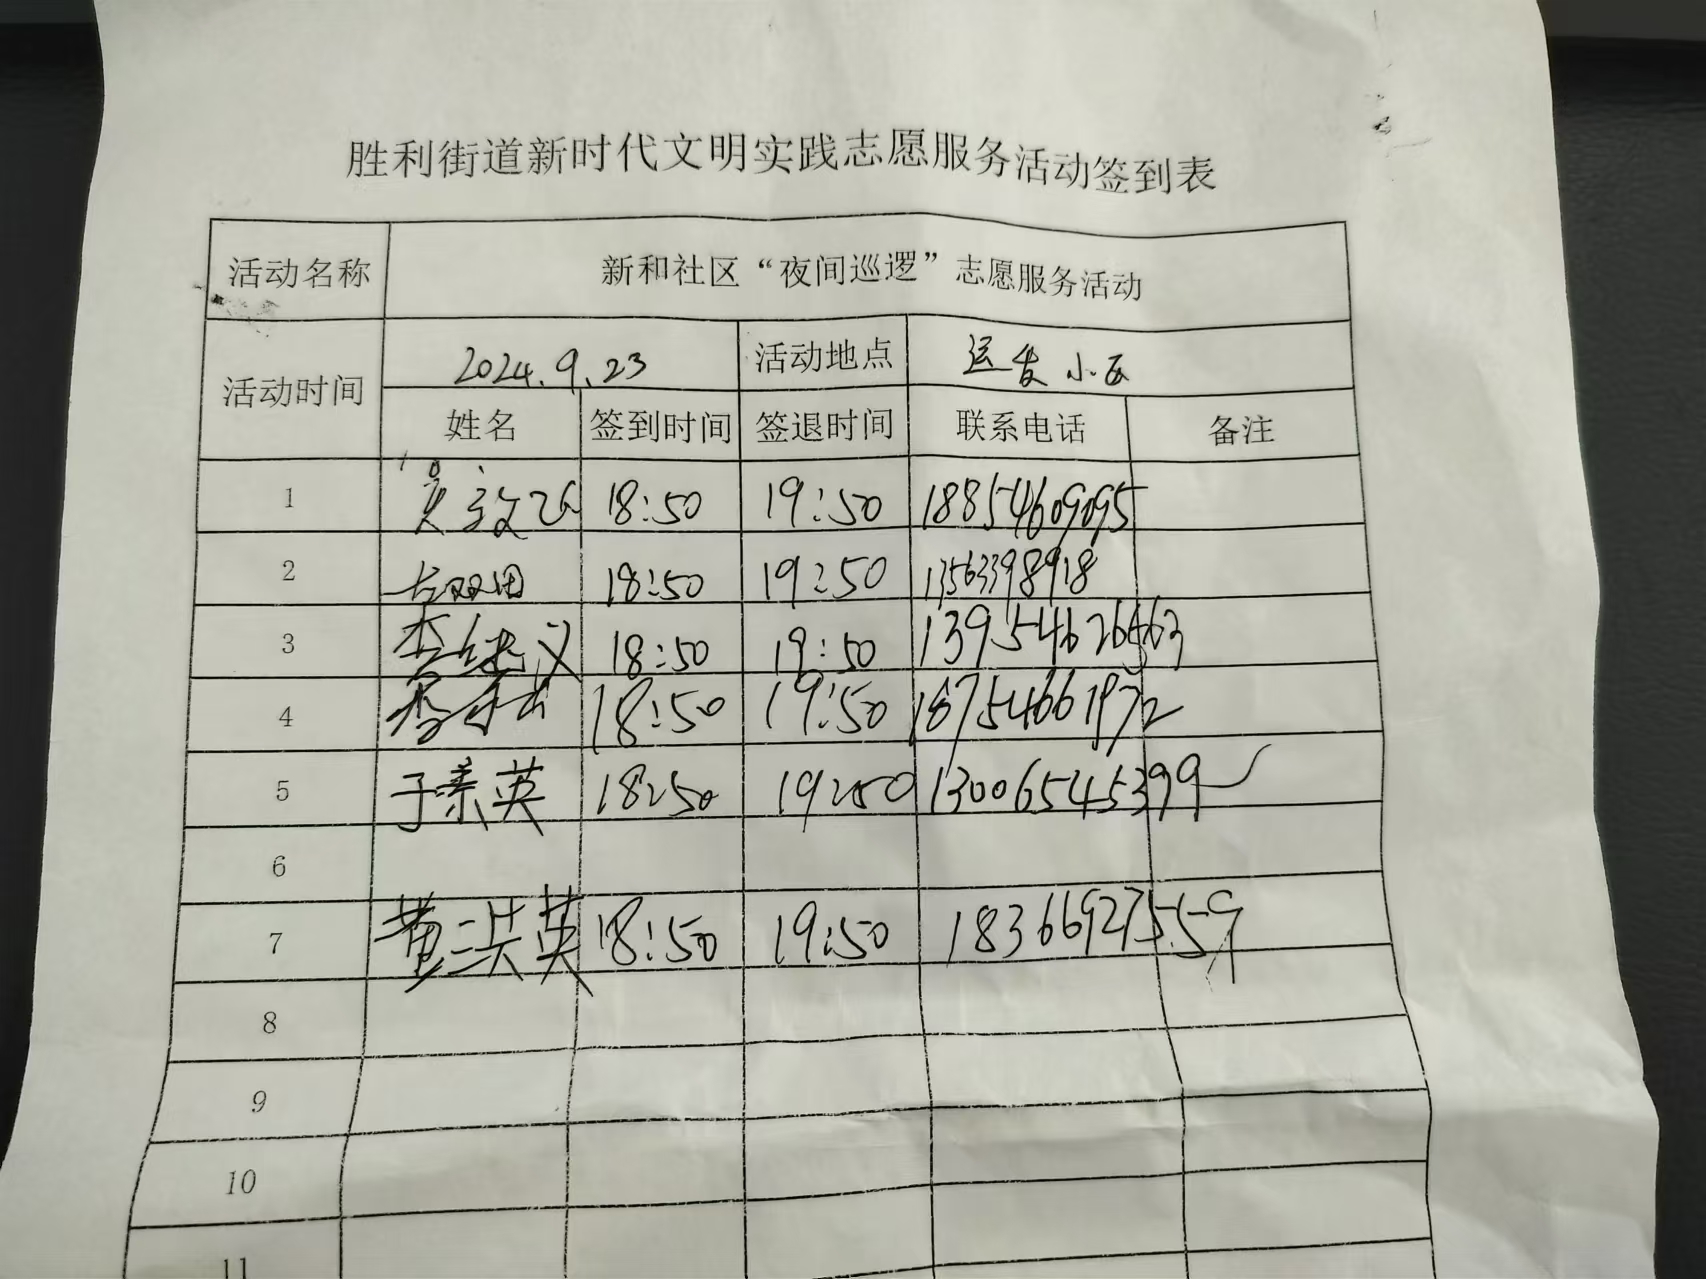 胜利街道新时代文明实践志愿服务活动签到表
活动名称 新和社区“夜间巡逻”志愿服务活动
活动时间 2024.9.23 活动地点 运发小区
姓名 签到时间 签退时间 联系电话 备注
1 18:50 19:50 18854609095
2 18:50 19:50 13563398918
3 18:50 19:50
4 18:50 19:50 18754661972
5 于素英 18:50 19:50 13006545399
6
7 黄洪英 18:50 19:50 18366927559
8
9
10
11